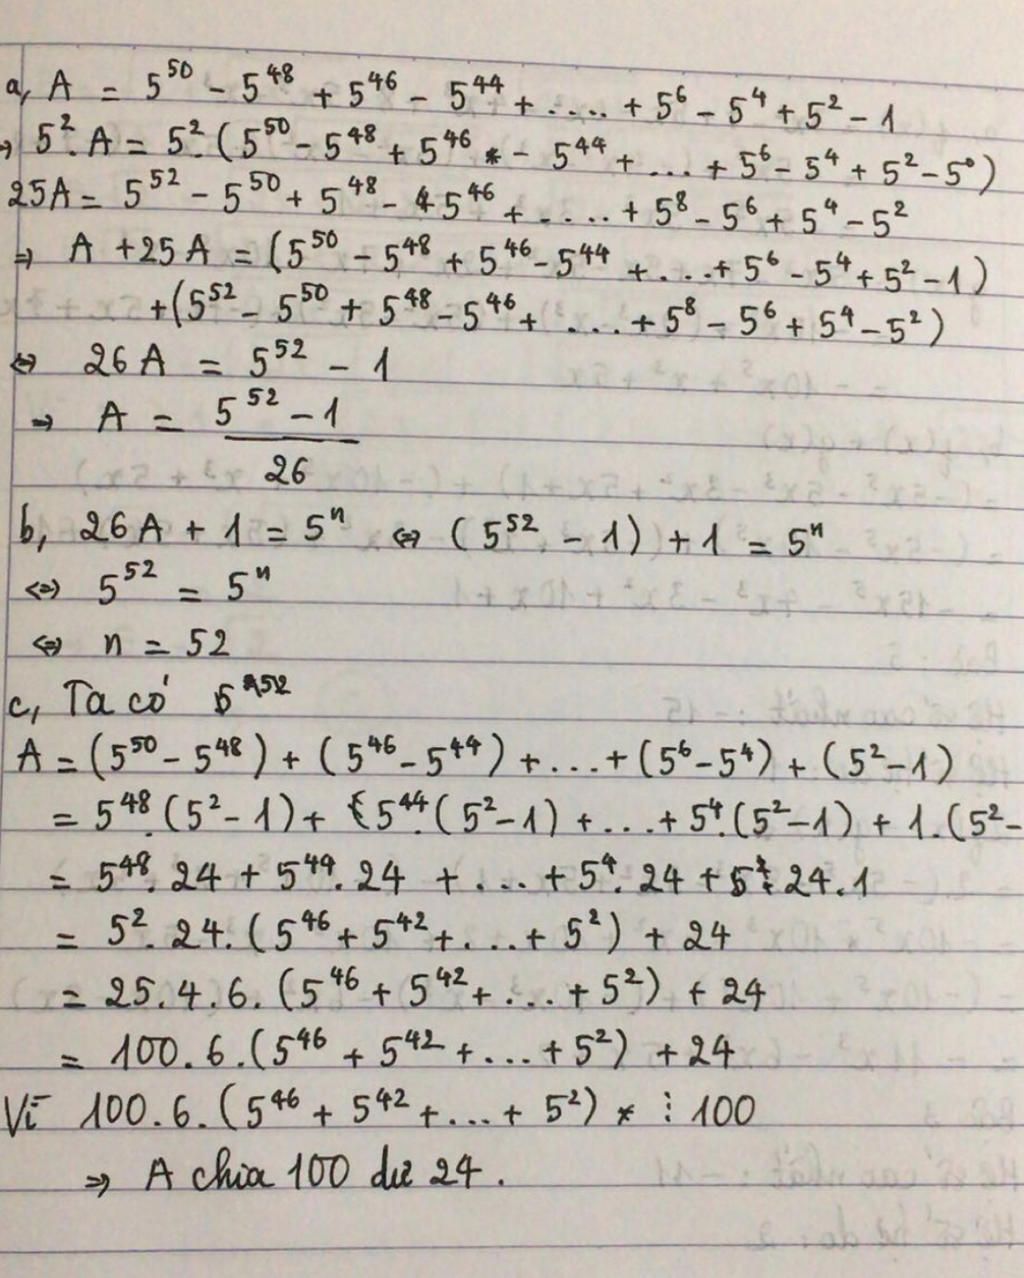 a, A = 5^50 - 5^48 + 5^46 - 5^44 + ..... + 5^6 - 5^4 + 5^2 - 1
→ 5^2. A = 5^2. (5^50 - 5^48 + 5^46 - 5^44 + ... + 5^6 - 5^4 + 5^2 - 5^0)
25A = 5^52 - 5^50 + 5^48 - 5^46 + ..... + 5^8 - 5^6 + 5^4 - 5^2
⇒ A + 25A = (5^50 - 5^48 + 5^46 - 5^44 + ... + 5^6 - 5^4 + 5^2 - 1)
+ (5^52 - 5^50 + 5^48 - 5^46 + ... + 5^8 - 5^6 + 5^4 - 5^2)
⇔ 26A = 5^52 - 1
⇒ A = 5^52 - 1
26
b, 26A + 1 = 5^n ⇔ (5^52 - 1) + 1 = 5^n
⇔ 5^52 = 5^n
⇔ n = 52
c, Ta có 5^52
A = (5^50 - 5^48) + (5^46 - 5^44) + ... + (5^6 - 5^4) + (5^2 - 1)
= 5^48. (5^2 - 1) + 5^44. (5^2 - 1) + ... + 5^4. (5^2 - 1) + 1. (5^2 -
= 5^48. 24 + 5^44. 24 + ... + 5^4. 24 + 24.1
= 5^2. 24. (5^46 + 5^42 + ... + 5^2) + 24
= 25.4.6. (5^46 + 5^42 + ... + 5^2) + 24
= 100.6.(5^46 + 5^42 + ... + 5^2) + 24
Vì 100.6.(5^46 + 5^42 + ... + 5^2) ⋮ 100
⇒ A chia 100 dư 24.